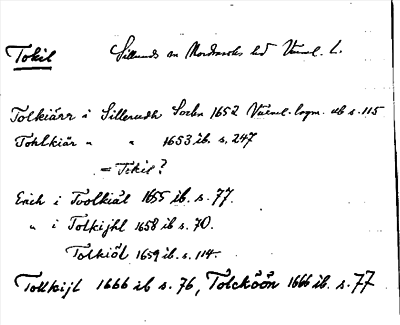 Tokil Sillerud sn Nordmarks hd Värml. L.
Tolkiärr i Sillerudh Sochn 1652 Värml. lagm. db s. 115
Tohlkiär " " 1653 ib. s. 247
= Tokil?
Erich i Tvolkiäl 1655 ib. s. 77.
" i Tolkijhl 1658 ib s. 70.
Tolkiöl 1659 ib. s. 114.
Tollkijl 1666 ib s. 76, Tolcköön 1666 ib. s. 77